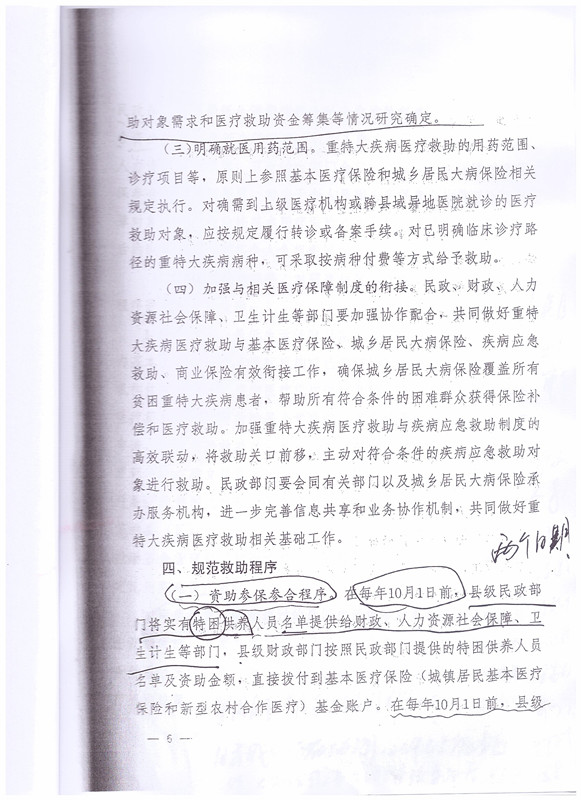 助对象需求和医疗救助资金筹集等情况研究确定。
（三）明确就医用药范围。重特大疾病医疗救助的用药范围、
诊疗项目等，原则上参照基本医疗保险和城乡居民大病保险相关
规定执行。对确需到上级医疗机构或跨县域异地医院就诊的医疗
救助对象，应按规定履行转诊或备案手续。对已明确临床诊疗路
径的重特大疾病病种，可采取按病种付费等方式给予救助。
（四）加强与相关医疗保障制度的衔接。民政、财政、人力
资源社会保障、卫生计生等部门要加强协作配合，共同做好重特
大疾病医疗救助与基本医疗保险、城乡居民大病保险、疾病应急
救助、商业保险有效衔接工作，确保城乡居民大病保险覆盖所有
贫困重特大疾病患者，帮助所有符合条件的困难群众获得保险补
偿和医疗救助。加强重特大疾病医疗救助与疾病应急救助制度的
高效联动，将救助关口前移，主动对符合条件的疾病应急救助对
象进行救助。民政部门要会同有关部门以及城乡居民大病保险承
办服务机构，进一步完善信息共享和业务协作机制，共同做好重
特大疾病医疗救助相关基础工作。
两个日期
四、规范救助程序
（一）资助参保参合程序。在每年10月1日前，县级民政部
门将实有特困供养人员名单提供给财政、人力资源社会保障、卫
生计生等部门，县级财政部门按照民政部门提供的特困供养人员
名单及资助金额，直接拨付到基本医疗保险（城镇居民基本医疗
保险和新型农村合作医疗）基金账户。在每年10月1日前，县级
— 6 —